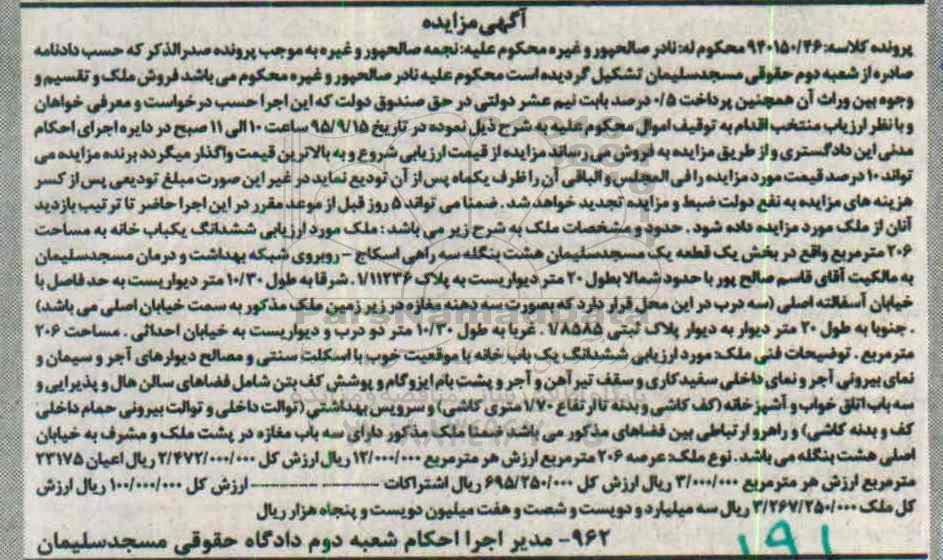 آگهی مزایده
پرونده کلاسه: ۹۴۰۱۵۰/۴۶ محکوم له: نادر صالحپور و غیره محکوم علیه: نجمه صالحپور و غیره به موجب پرونده صدرالذکر که حسب دادنامه
صادره از شعبه دوم حقوقی مسجدسلیمان تشکیل گردیده است محکوم علیه نادر صالحپور و غیره محکوم می باشد فروش ملک و تقسیم و
وجوه بین وراث آن همچنین پرداخت ۰/۵ درصد بابت نیم عشر دولتی در حق صندوق دولت که این اجرا حسب درخواست و معرفی خواهان
و با نظر ارزیاب منتخب اقدام به توقیف اموال محکوم علیه به شرح ذیل نموده در تاریخ ۹۵/۹/۱۵ ساعت ۱۰ الی ۱۱ صبح در دایره اجرای احکام
مدنی این دادگستری و از طریق مزایده به فروش می رساند مزایده از قیمت ارزیابی شروع و به بالاترین قیمت واگذار میگردد برنده مزایده می
تواند ۱۰ درصد قیمت مورد مزایده را فی المجلس و الباقی آن را ظرف یکماه پس از آن تودیع نماید در غیر این صورت مبلغ تودیعی پس از کسر
هزینه های مزایده به نفع دولت ضبط و مزایده تجدید خواهد شد . ضمنا می تواند ۵ روز قبل از موعد مقرر در این اجرا حاضر تا ترتیب بازدید
آنان از ملک مورد مزایده داده شود . حدود و مشخصات ملک به شرح زیر می باشد : ملک مورد ارزیابی ششدانگ یکباب خانه به مساحت
۲۰۶ مترمربع واقع در بخش یک قطعه یک مسجدسلیمان هشت بنگله سه راهی اسکاج - روبروی شبکه بهداشت و درمان مسجدسلیمان
به مالکیت آقای قاسم صالح پور با حدود شمالا بطول ۲۰ متر دیواریست به پلاک ۱/۱۱۲۳۶ . شرقا به طول ۱۰/۳۰ متر دیواریست به حد فاصل با
خیابان آسفالته اصلی (سه درب در این محل قرار دارد که بصورت سه دهنه مغازه در زیر زمین ملک مذکور به سمت خیابان اصلی می باشد)
. جنوبا به طول ۲۰ متر دیوار به دیوار پلاک ثبتی ۱/۸۵۸۵ . غربا به طول ۱۰/۳۰ متر دو درب و دیواریست به خیابان احداثی . مساحت ۲۰۶
مترمربع . توضیحات فنی ملک: مورد ارزیابی ششدانگ یک باب خانه با موقعیت خوب با اسکلت سنتی و مصالح دیوارهای آجر و سیمان و
نمای بیرونی آجر و نمای داخلی سفیدکاری و سقف تیرآهن و آجر و پشت بام ایزوگام و پوشش کف بتن شامل فضاهای سالن هال و پذیرایی و
سه باب اتاق خواب و آشپزخانه (کف کاشی و بدنه تا ارتفاع ۱/۷۰ متری کاشی) و سرویس بهداشتی (توالت داخلی و توالت بیرونی حمام داخلی
کف و بدنه کاشی) و راهرو ارتباطی بین فضاهای مذکور می باشد. ضمنا ملک مذکور دارای سه باب مغازه در پشت ملک و مشرف به خیابان
اصلی هشت بنگله می باشد. نوع ملک: عرصه ۲۰۶ مترمربع ارزش هر مترمربع ۱۲/۰۰۰/۰۰۰ ریال ارزش کل ۲/۴۷۲/۰۰۰/۰۰۰ ریال اعیان ۲۳۱۷۵
مترمربع ارزش هر مترمربع ۳/۰۰۰/۰۰۰ ریال ارزش کل ۶۹۵/۲۵۰/۰۰۰ ریال اشتراکات -------- -------- ارزش کل ۱۰۰/۰۰۰/۰۰۰ ریال ارزش
کل ملک ۳/۲۶۷/۲۵۰/۰۰۰ ریال سه میلیارد و دویست و شصت و هفت میلیون دویست و پنجاه هزار ریال
۹۶۲- مدیر اجرا احکام شعبه دوم دادگاه حقوقی مسجدسلیمان
۱۹۱
ParsNamadData